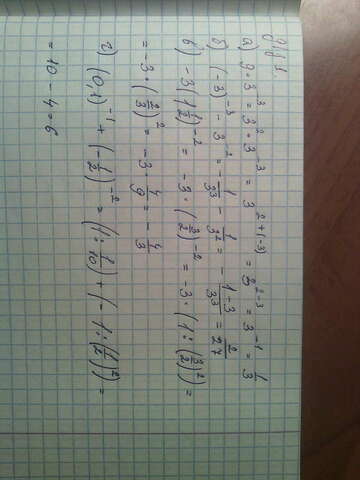 а) 9·3⁻³ = 3²·3⁻³ = 3²⁺⁽⁻³⁾ = 3²⁻³ = 3⁻¹ = 1/3
б) (-3)⁻³ - 3⁻² = -1/3³ - 1/3² = - (1-3)/3³ = 2/27
в) -3(1 1/2)⁻² = -3·(3/2)⁻² = -3·(1:(3/2)²) =
= -3·(2/3)² = -3 4/9 = -4/3
г) (0,1)⁻¹ + (-1/2)⁻² = (1:1/10) + (-1:(1/2)²) =
= 10 - 4 = 6